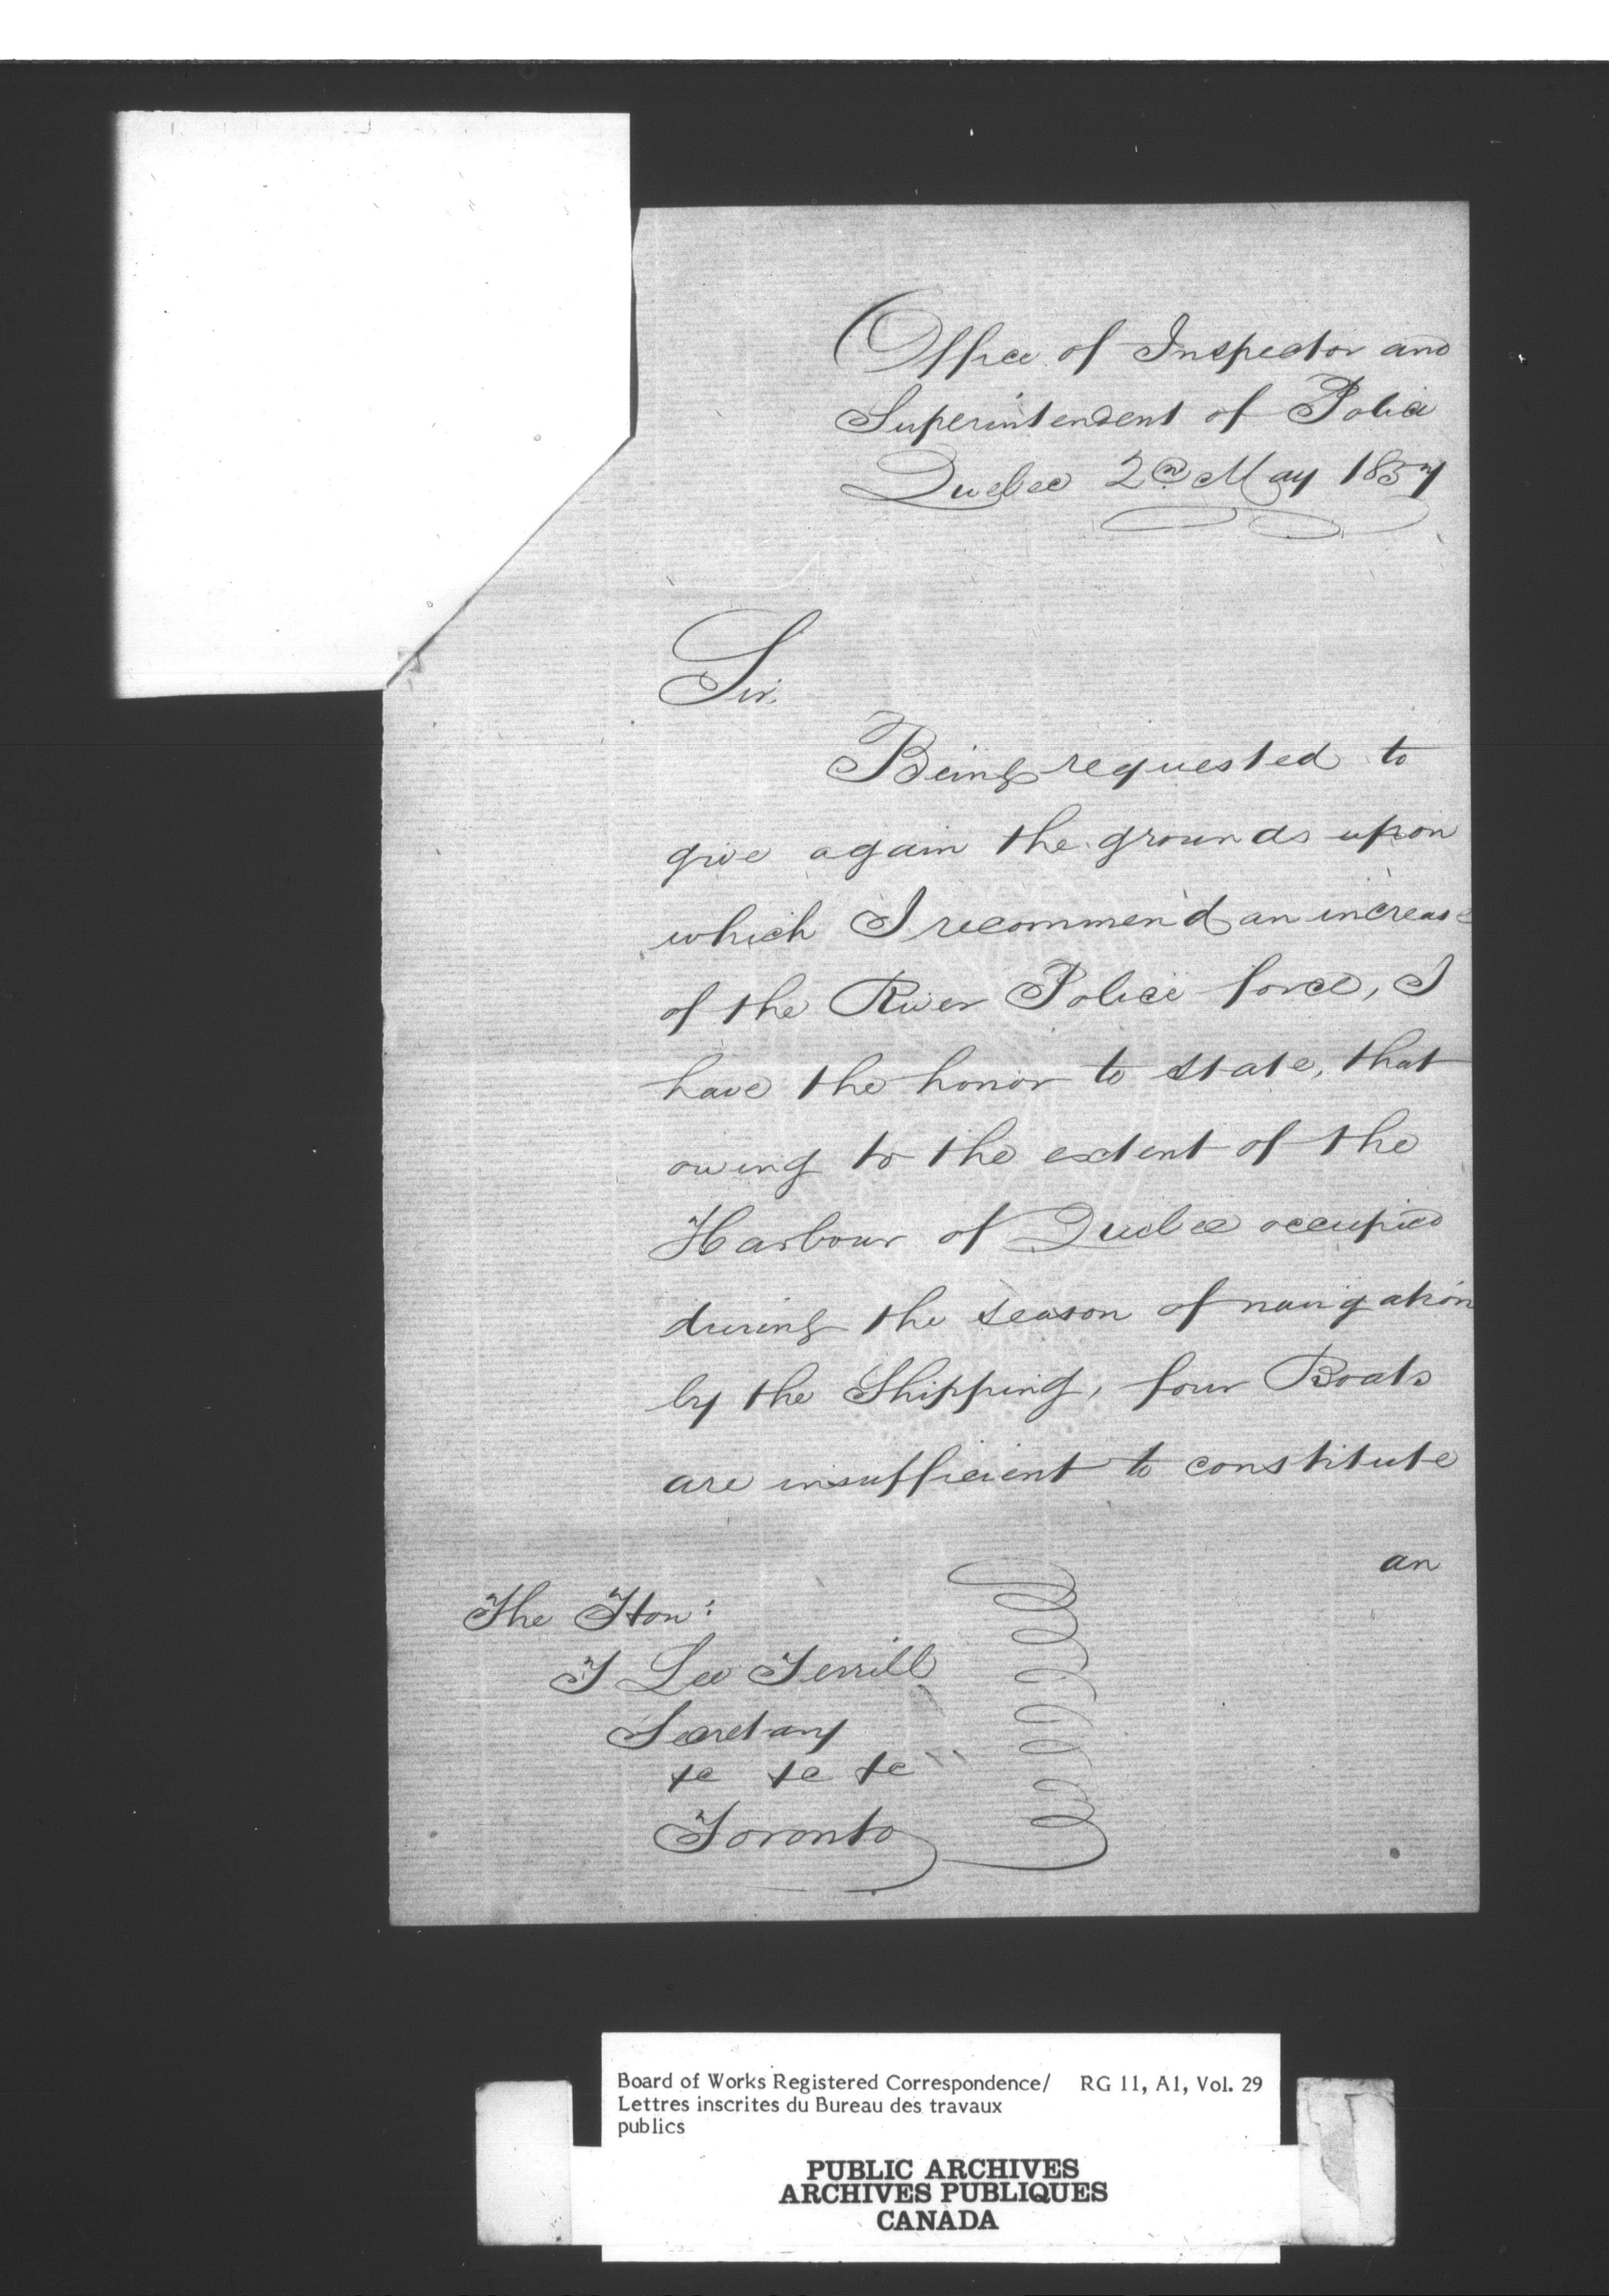 Office of Inspector and
Superintendent of Police
Quebec 2nd May 1857
Sir,
Being requested to
give again the grounds upon
which I recommend an increase
of the River Police force, I
have the honor to state, that
owing to the extent of the
Harbour of Quebec occupied
during the season of navigation
by the Shipping, four Boats
are insufficient to constitute
an
The Hon:
T Lee Terrill
Secretary
&c &c &c
Toronto
Board of Works Registered Correspondence/ RG 11, A1, Vol. 29
Lettres inscrites du Bureau des travaux
publics
PUBLIC ARCHIVES
ARCHIVES PUBLIQUES
CANADA